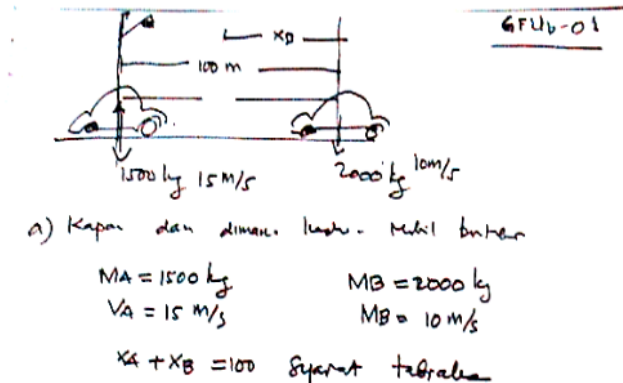 GFUb-01
XB
100 m
1500 kg 15 m/s
2000 kg 10m/s
a) Kapan dan dimana kedua mobil
MA = 1500 kg
MB = 2000 kg
VA = 15 m/s
MB = 10 m/s
XA + XB = 100 Syarat tabrakan